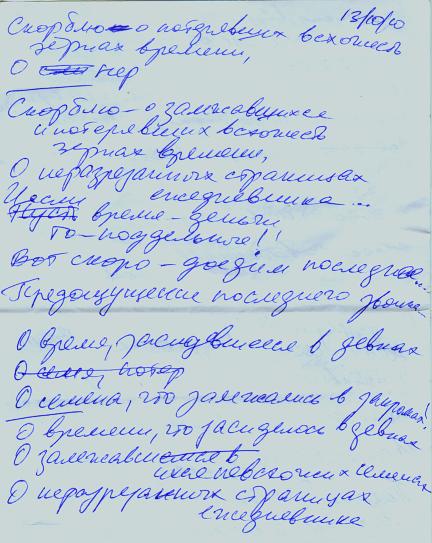 13/10/10
Скорблю о потерявших всхожесть
зёрнах времени,
О нер
Скорблю – о залежавшихся
и потерявших всхожесть
зёрнах времени,
О неразрезанных страницах
ежедневника...
И если время – деньги
то – поддельные!!
Вот скоро – доедим последнее...
Предощущение последнего звонка...
О время, засидевшееся в девках
О семя, потер
О семена, что залежались в закромах!
О времени, что засиделось в девках
О залежавш
ихся невсхожих семенах
О неразрезанных страницах
ежедневника